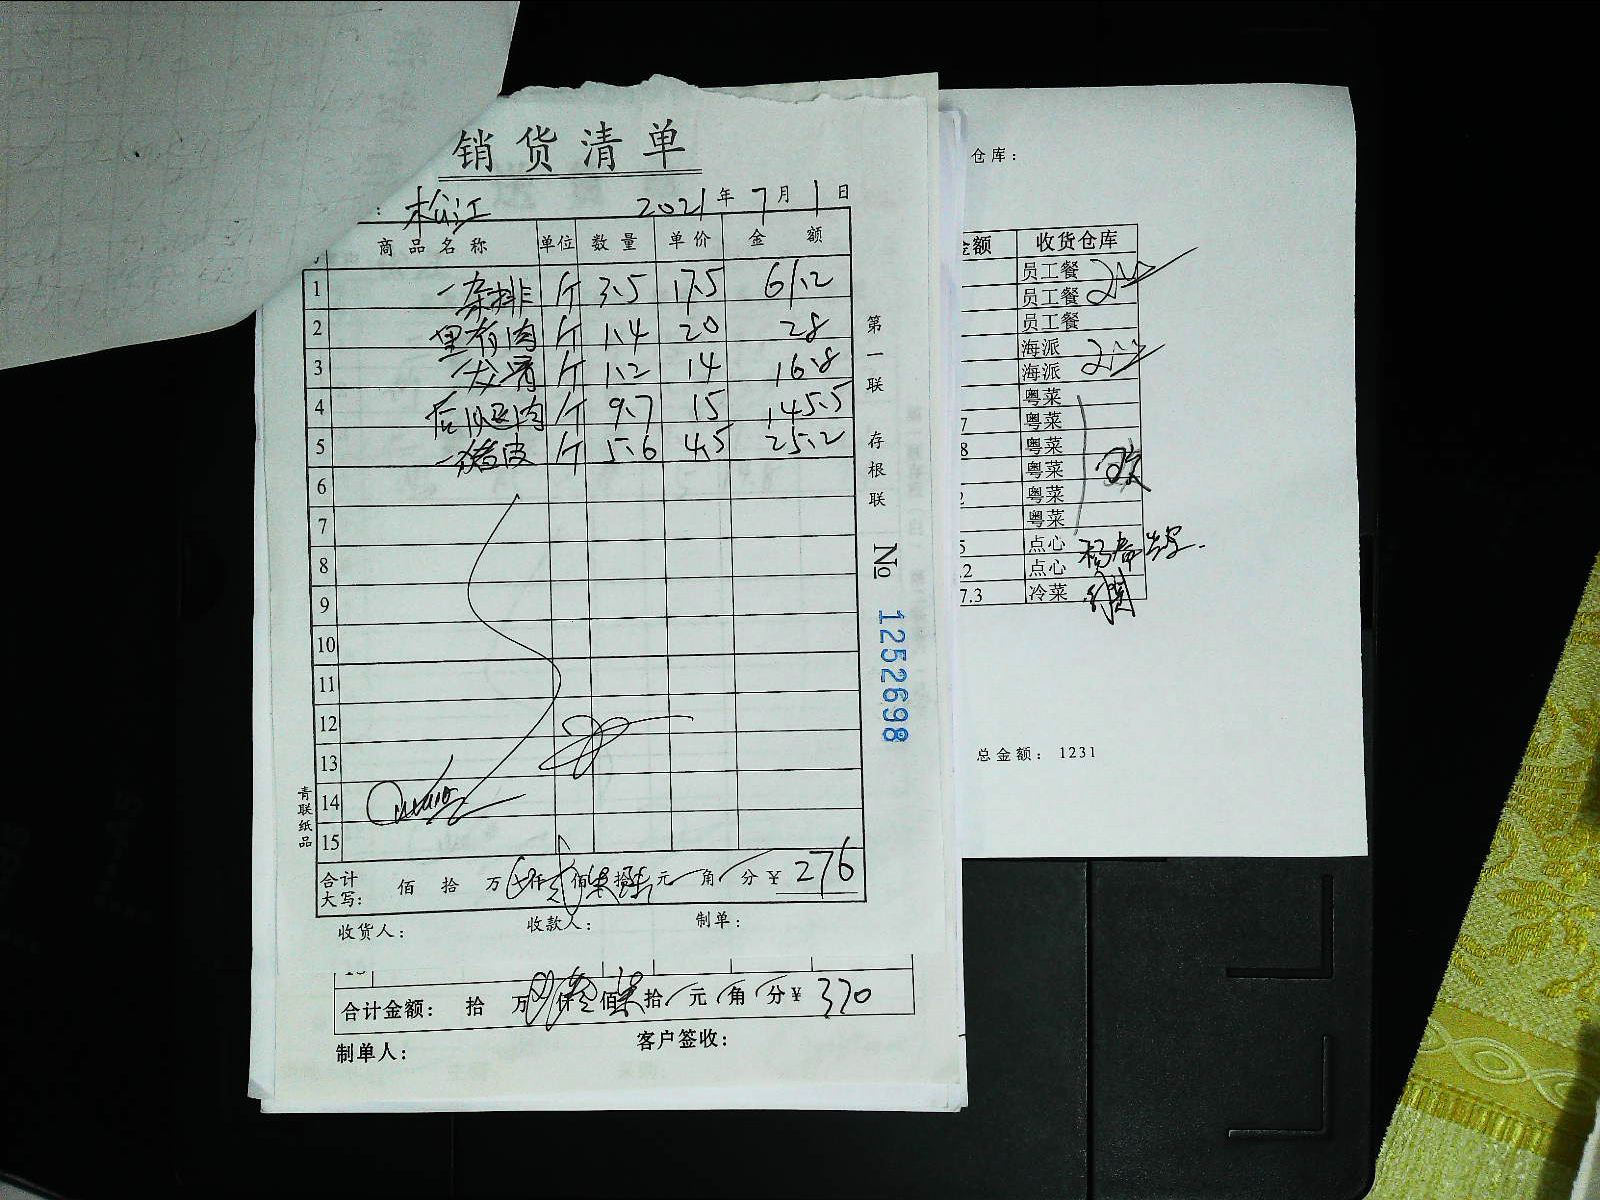 销货清单
: 松江 2021年7月1日
商品名称 单位 数量 单价 金额
1 一杂排 斤 3.5 17.5 61.2
2 里脊肉 斤 1.4 20 28
3 一龙骨 斤 1.2 14 16.8
4 后腿肉 斤 9.7 15 145.5
5 一猪皮 斤 5.6 4.5 25.2
6
7
8
9
10
11
12
13
14
15
合计大写: 佰 拾 万 仟贰佰柒拾陆元 角 分 ¥ 276
收货人: 收款人: 制单:
第一联 存根联
№ 1252698
青联纸品
合计金额: 拾 万 仟叁佰柒拾 元 角 分 ¥ 370
制单人: 客户签收:
仓库:
金额 收货仓库
员工餐
员工餐
员工餐
海派
海派
粤菜
7 粤菜
8 粤菜
粤菜
2 粤菜
粤菜
5 点心
.2 点心
7.3 冷菜
总金额: 1231